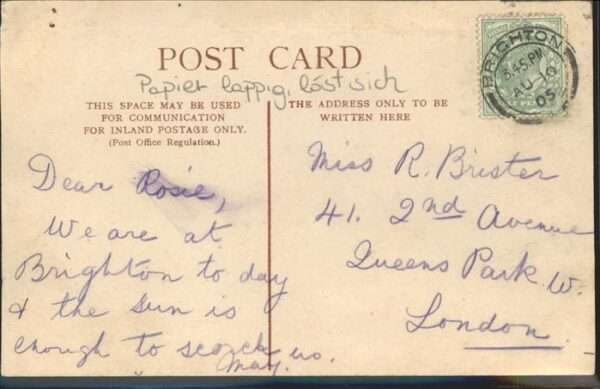 POST CARD
Papier lappig, löst sich
THIS SPACE MAY BE USED
FOR COMMUNICATION
FOR INLAND POSTAGE ONLY.
(Post Office Regulation.)
Dear Rosie,
We are at
Brighton to day
& the sun is
enough to scorch us.
May.
THE ADDRESS ONLY TO BE
WRITTEN HERE
Miss R. Brister
41. 2nd Avenue
Queens Park W.
London.
BRIGHTON
3.45 PM
AU 10
05